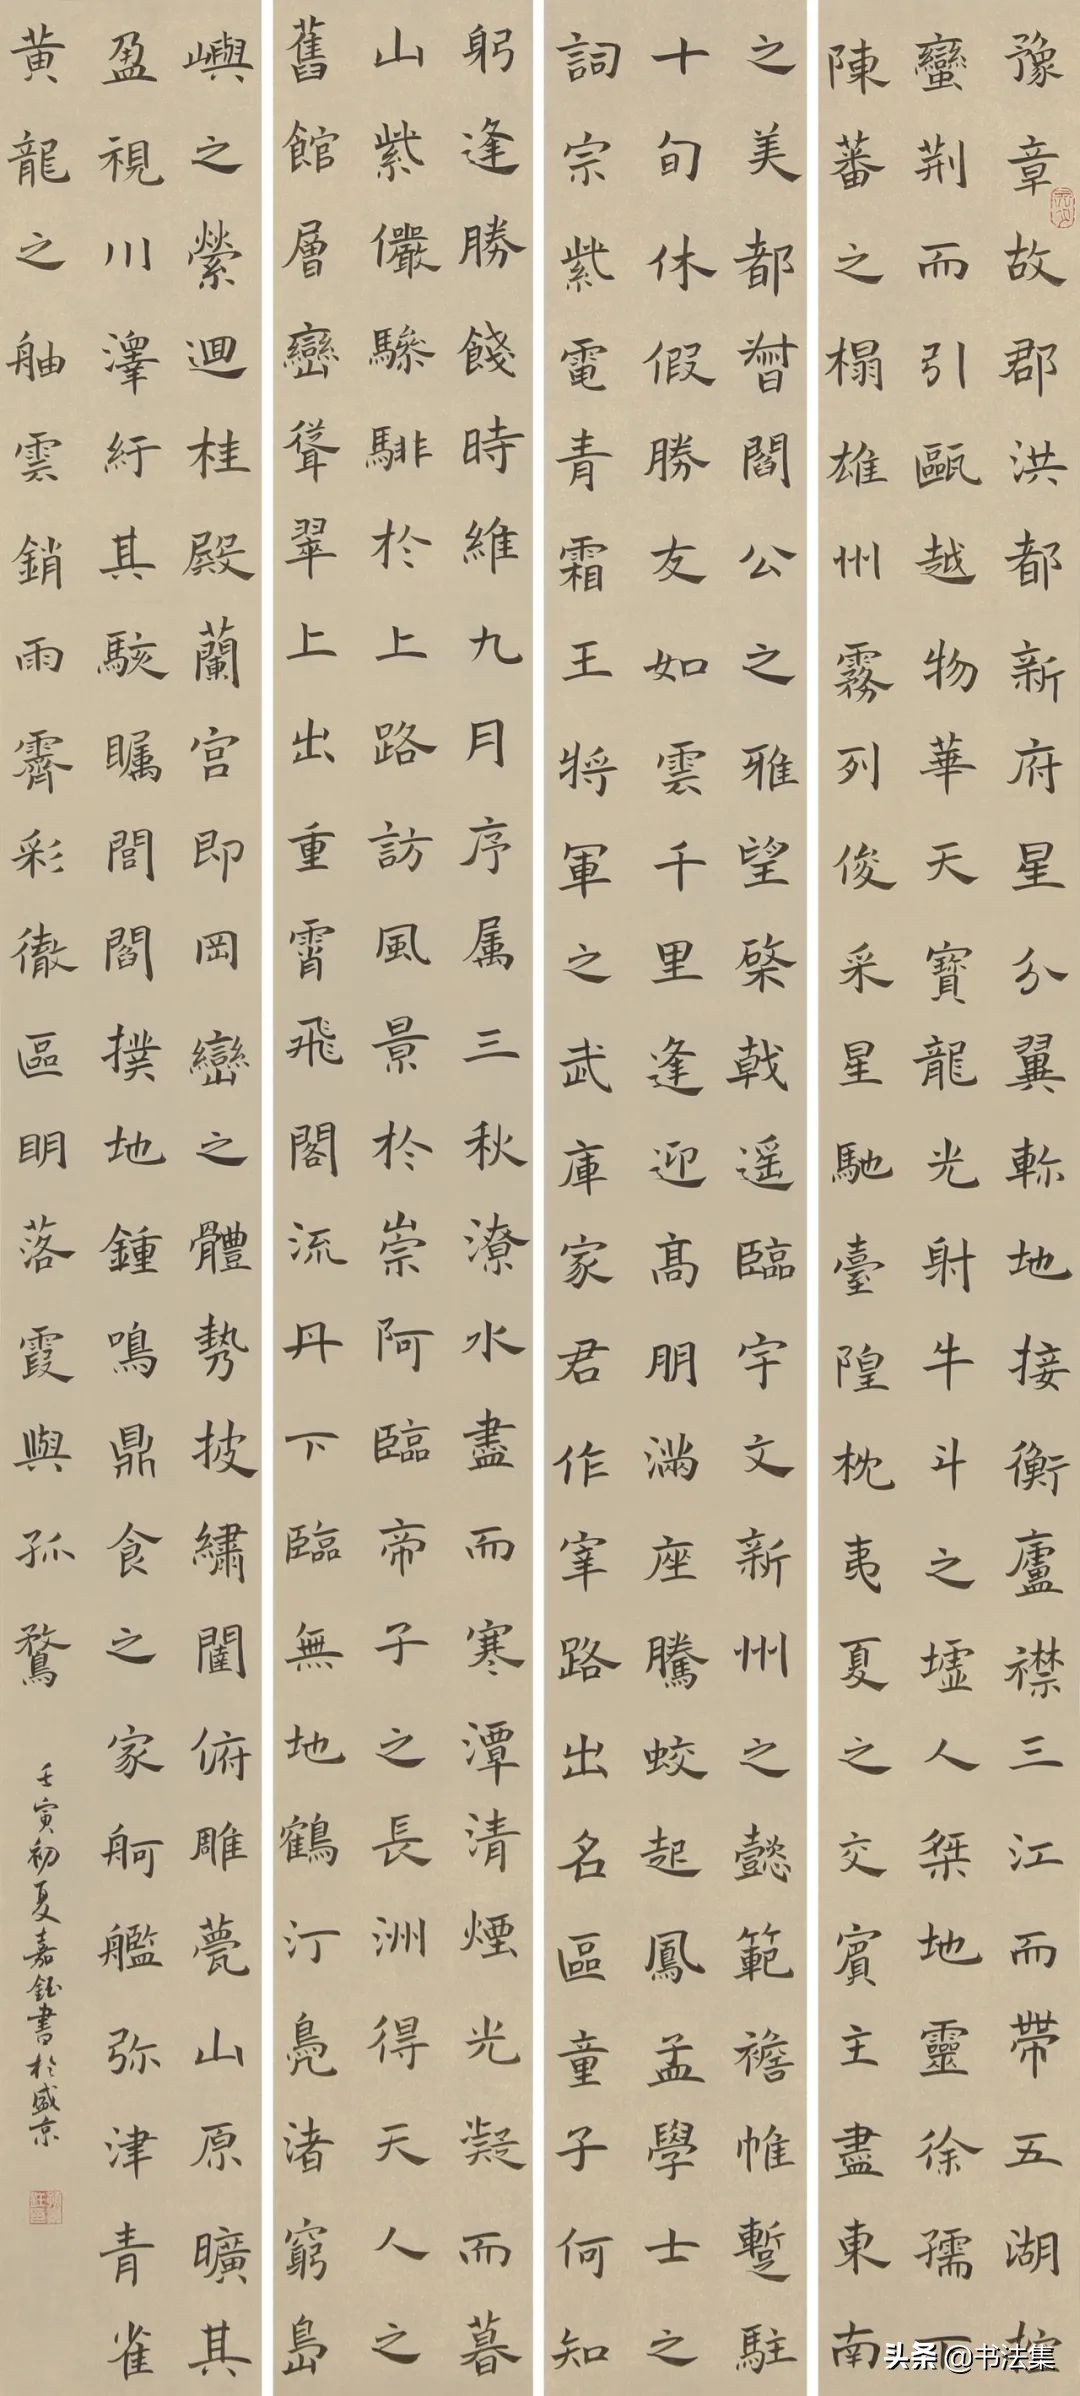 豫章故郡洪都新府星分翼軫地接衡廬襟三江而帶五湖控
蠻荆而引甌越物華天寶龍光射牛斗之墟人桀地靈徐孺下
陳蕃之榻雄州霧列俊采星馳臺隍枕夷夏之交賓主盡東南
之美都督閻公之雅望棨戟遥臨宇文新州之懿範襜帷暫駐
十旬休假勝友如雲千里逢迎高朋滿座騰蛟起鳳孟學士之
詞宗紫電青霜王將軍之武庫家君作宰路出名區童子何知
躬逢勝餞時維九月序属三秋潦水盡而寒潭清煙光凝而暮
山紫儼驂騑於上路訪風景於崇阿臨帝子之長洲得天人之
舊館層巒聳翠上出重霄飛閣流丹下臨無地鶴汀鳧渚窮島
嶼之縈迴桂殿蘭宮即岡巒之體勢披繡闥俯雕甍山原曠其
盈視川澤紆其駭矚閭閻撲地鍾鳴鼎食之家舸艦弥津青雀
黄龍之舳雲銷雨霽彩徹區明落霞與孤鶩
壬寅初夏嘉鈺書於盛京
头条 @书法集